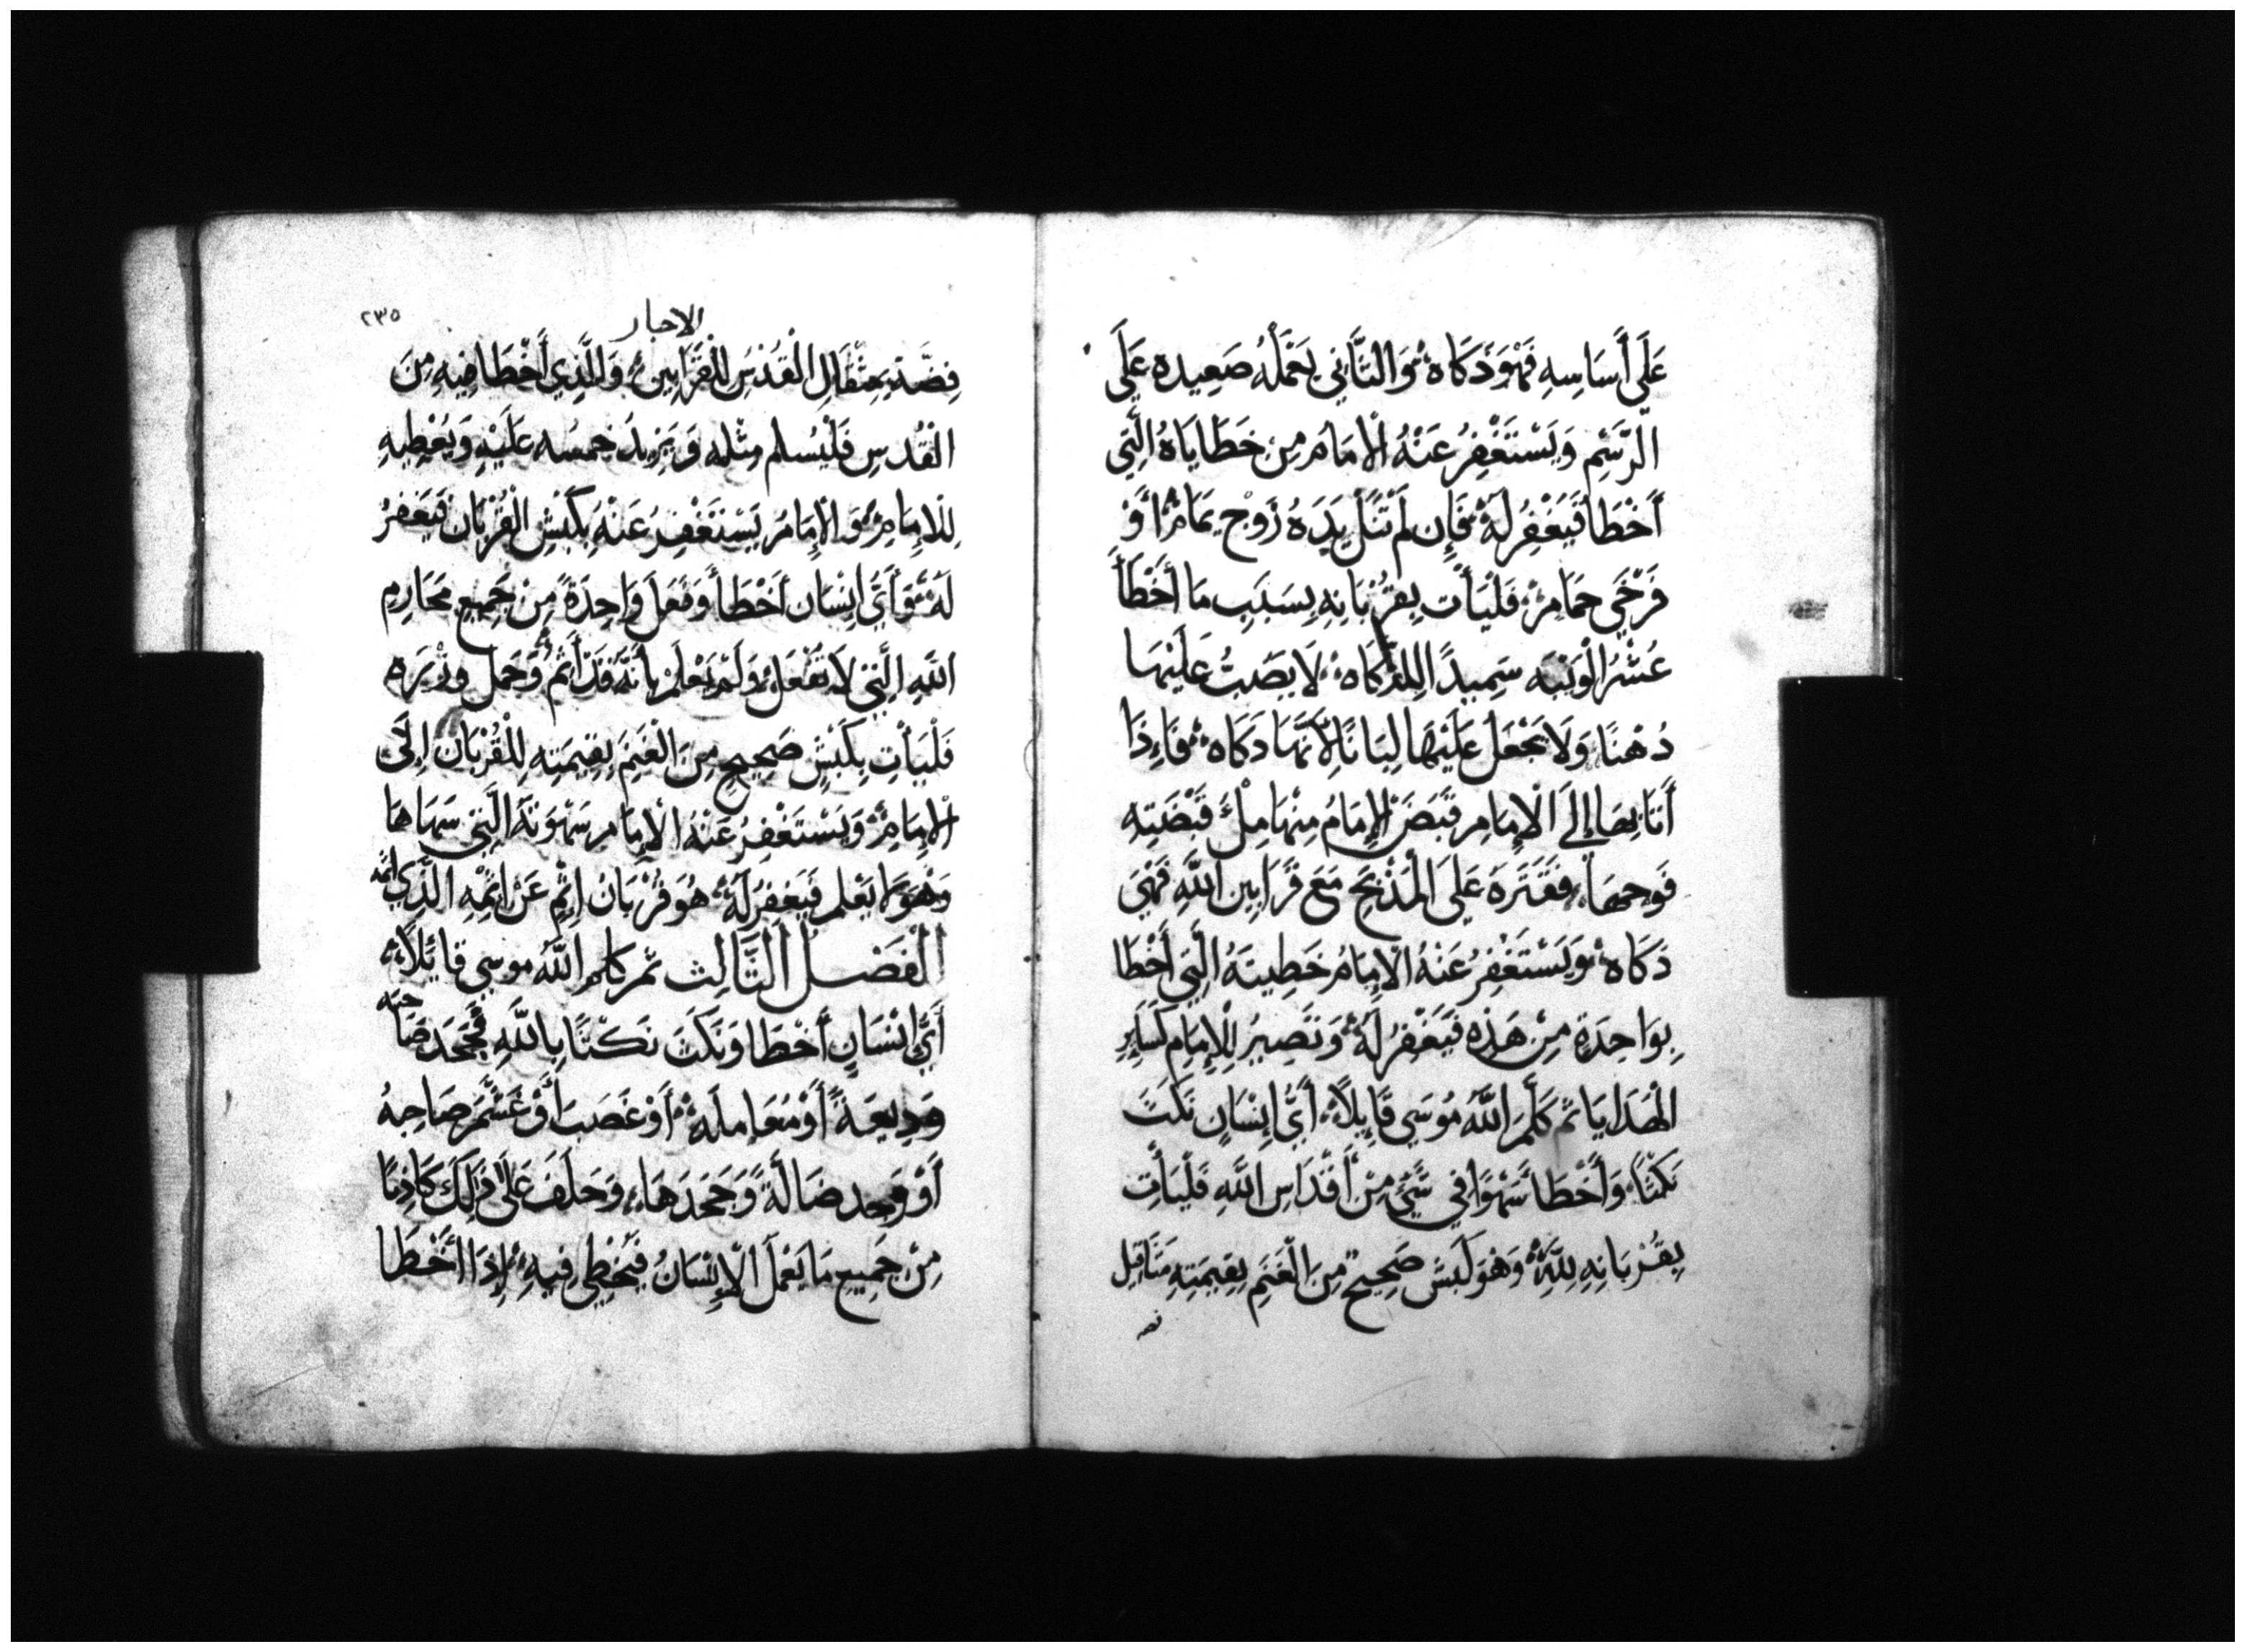 عَلَى أَسَاسِهِ فَهُوَ ذَكَاه وَالثَّانِي يَعْمَلُهُ صَعِيده عَلَى
الرَّسْمِ وَيَسْتَغْفِرُ عَنْهُ الْإمَام مِن خَطَايَاهُ الَّتِي
أَخْطَأ فَيُغْفِرُ لَهُ فَإِن لَم تَنَل يَدَهُ زَوْج يَمَام أَوْ
فَرْخَي حَمَام فَلْيَأْت بِقُرْبَانِهِ بِسَبَبِ مَا أَخْطَأ
عُشْرَ الْوَيْبَه سَمِيدًا لِلذَّكَاه لَا يَصُبُّ عَلَيْهَا
دُهْنًا وَلَا يَجْعَل عَلَيْهَا لِبَانًا لِأَنَّهَا ذَكَاه فَإِذَا
أَتَا بِهَا إِلَى الْإِمَامِ قَبَضَ الْإِمَامُ مِنْهَا مِلْءَ قَبْضَتِهِ
فَوحمهَا فَقَتَرَهُ عَلَى الْمَذْبَحِ مَعَ قَرَابِينِ اللَّهِ فَهِيَ
ذَكَاه وَيَسْتَغْفِرُ عَنْهُ الْإِمَامُ خَطِيتَهُ الَّتِي أَخْطَا
بِوَاحِدَةٍ مِنْ هَذِهِ فَيُغْفِرُ لَهُ وَتَصِيرُ لِلْإِمَامِ كَسَايِرِ
الْهَدَايَا ثم كَلَّمَ اللَّهُ مُوسَى قَايِلًا أَيُّ إِنْسَانٍ نَكَثَ
نَكْثًا وَأَخْطَأ سَهْوًا فِي شَيْءٍ مِنْ أَقْدَاسِ اللَّهِ فَلْيَأْتِ
بِقُرْبَانِهِ لِلَّهِ وَهُوَ كَبْش صَحِيح مِنَ الْغَنَمِ بِقِيمَتِهِ مَثَاقِل
فضه
الاحبار
٢٣٥
فِضَّةٍ بِمِثْقَالِ الْقُدْسِ لِلْقَرَابِين وَالَّذِي أَخْطَا فِيهِ مِنَ
الْقُدسِ فَلْيُسلم مِثْله وَيَزِيدُ خمسُه عَلَيْهِ وَيُعْطِيهِ
لِلْإِمَام وَالْإِمَامُ يَسْتَغْفِرُ عَنْهُ بِكَبْشِ الْقُرْبَان فَيَغْفِرُ
لَهُ وَأَيُّ إِنْسَان أَخْطَأ وَفَعَلَ وَاحِدَةً مِنْ جَمِيعِ مَحَارِمِ
اللَّهِ الَّتِي لَا تُفْعَل وَلَمْ يَعْلَم بِأَنَّهُ قَدْ أَثِمَ وَحَمَل وِزْرَه
فَلْيَأْتِ بِكَبْشٍ صَحِيحٍ مِنَ الْغَنَمِ بِقِيمَتِهِ لِلْقُرْبَانِ إِلَى
الْإِمَامِ وَيَسْتَغْفِرُ عَنْهُ الْإِمَام سَهْوَتَهُ الَّتِي سَهَاهَا
وَهُوَ لَم يَعْلم فَيُغفِرُ لَهُ هُوَ قُرْبَانُ إِثْمٍ عَنْ إِثْمِهِ الَّذِي اثمه
الْفَصْلُ الثَّالِث ثم كلم اللَّهُ موسي قائلًا
أَيُّ إِنْسَانٍ أَخْطَا وَنَكَثَ نَكْثًا بِاللَّهِ فَجَحَدَ صَاحبه
وَدِيعَةً أَوْ مُعَامِلَة أَوْ غَصَبَ أَوْ غَشَمَ صَاحِبهُ
أَوْ وَجد ضَالَّةً وَجَحَدَهَا وَحَلَفَ عَلَى ذَلِكَ كَاذِبًا
مِنْ جَمِيعِ مَا يَعْمَلُ الْإِنْسَانُ فَيُخْطِي فِيهِ إِذَا أَخْطَا